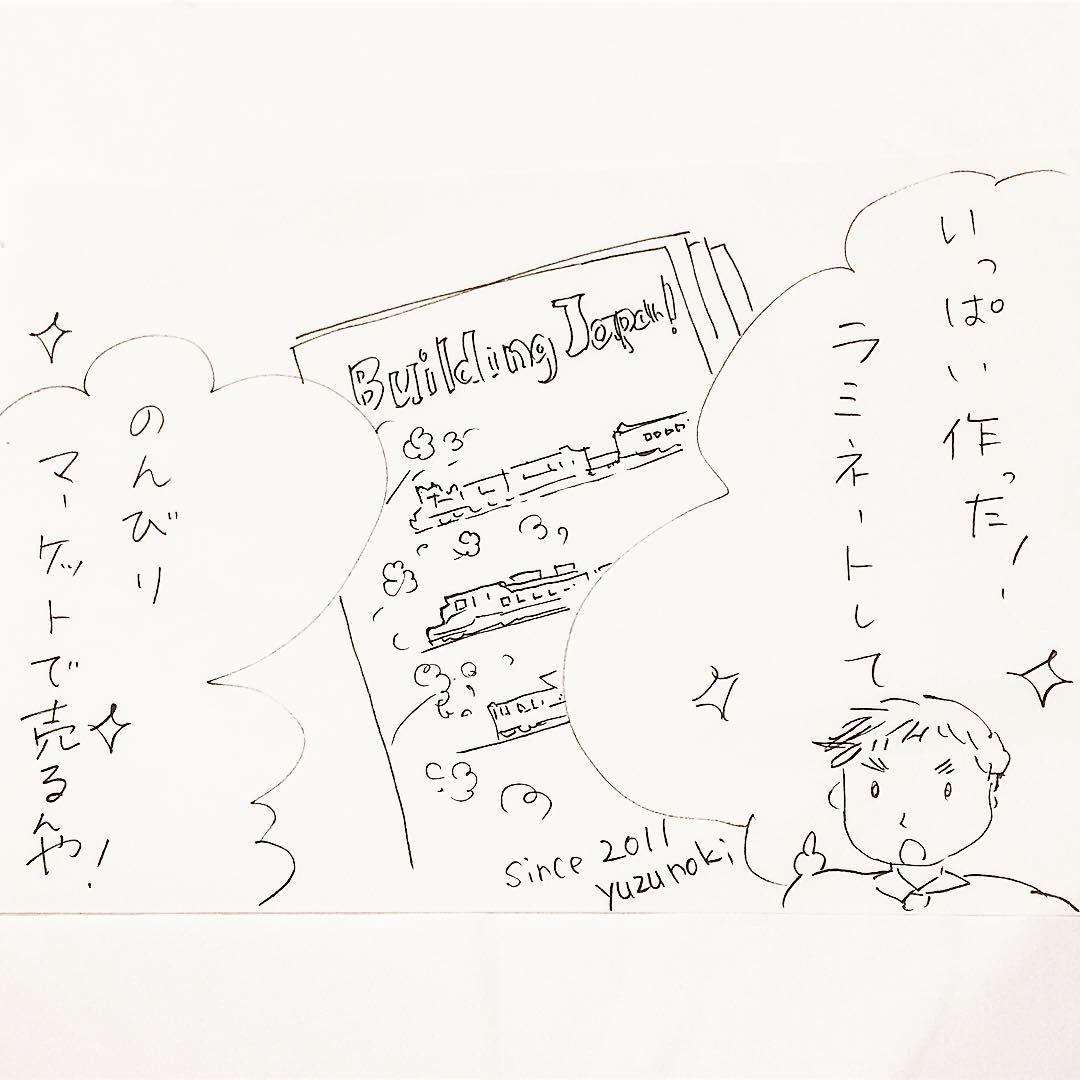 いっぱい作った!
ラミネートして
Building Japan!
のんびり
マーケットで売るんや!
since 2011
yuzunoki